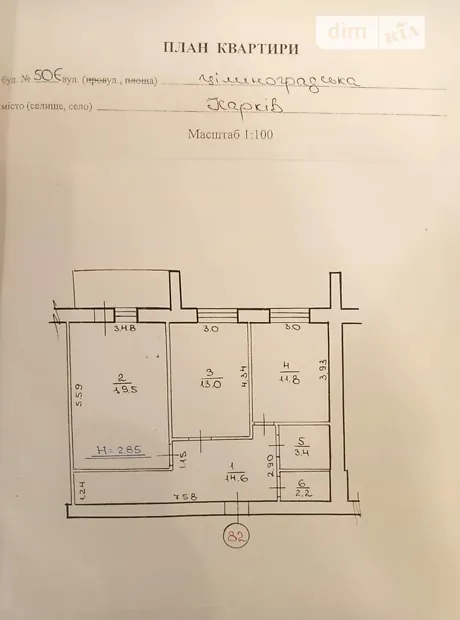 dim RIA
ПЛАН КВАРТИРИ
буд. № 50Є вул. (провул., площа) Цілиноградська
місто (селище, село) Харків
Масштаб 1:100
3.48
3.0
3.0
2
19.5
5.59
3
13.0
4.34
4
11.8
3.93
H=2.85
1.15
1
14.6
2.90
5
3.4
6
2.2
1.24
7.58
82